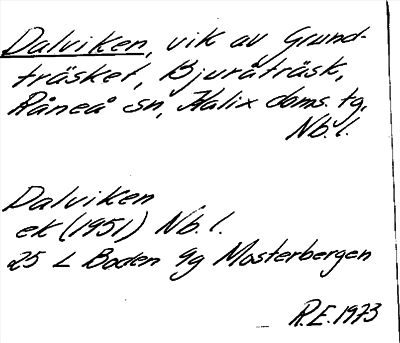 Dalviken, vik av Grund-
träsket, Bjuråträsk,
Råneå sn, Kalix doms. tg,
Nb. l.
Dalviken
ek (1951) Nb. l.
25 L Boden 9g Mosterbergen
R.E. 1973